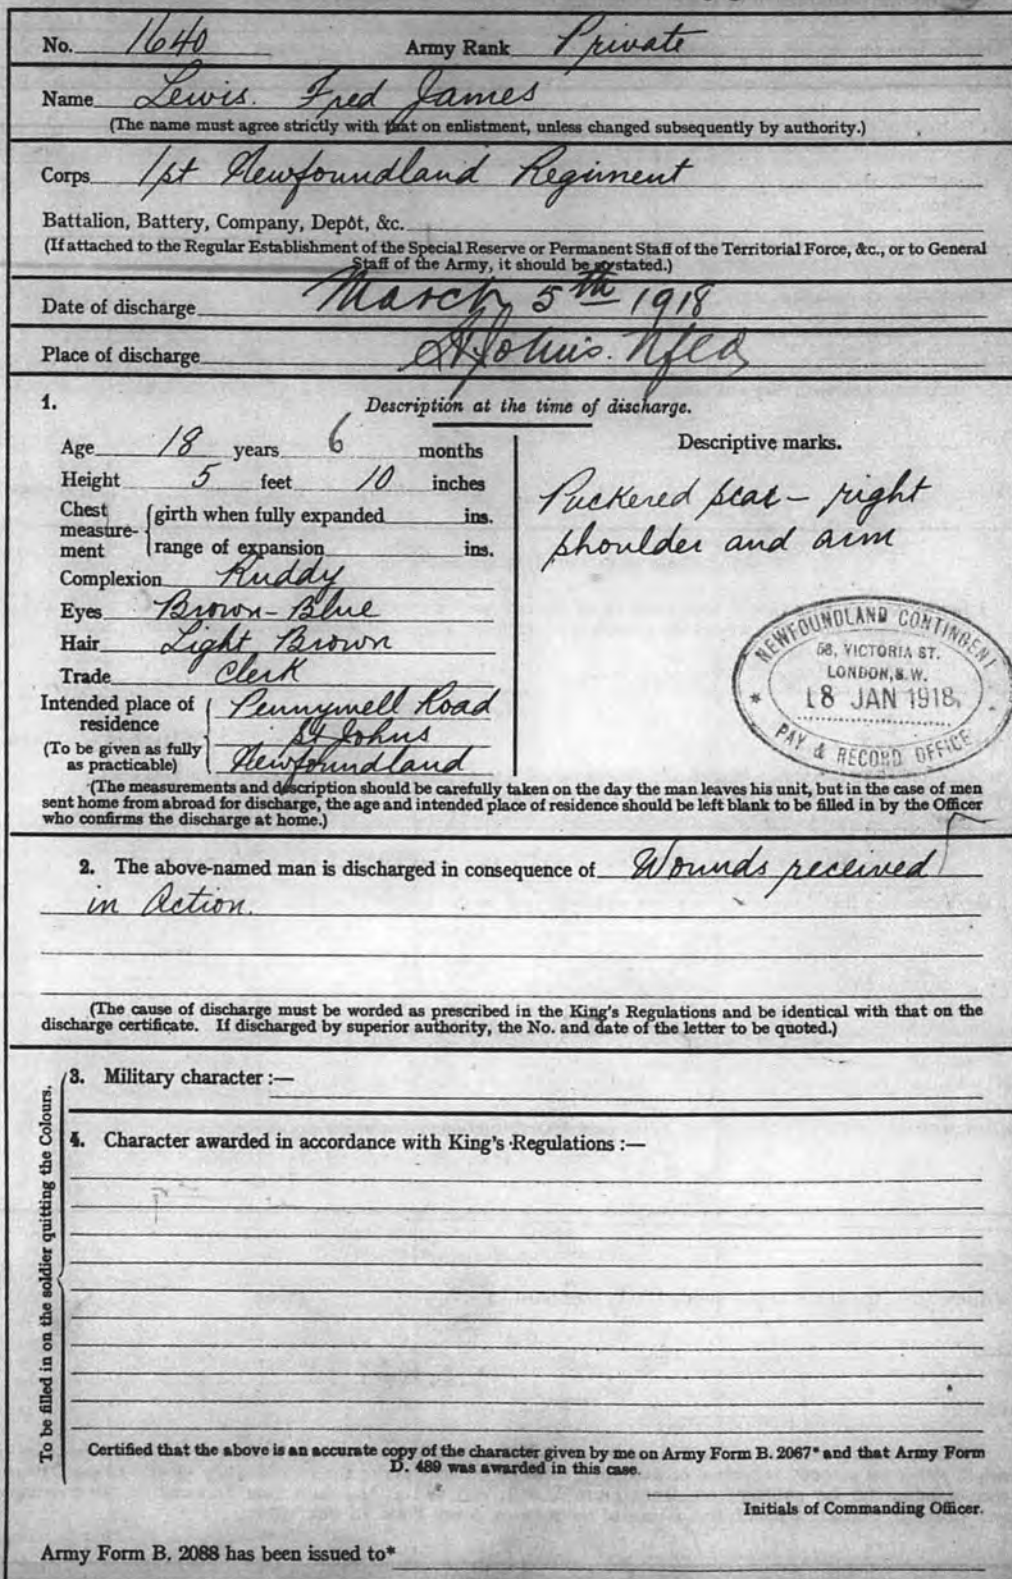 No. 1640 Army Rank Private
Name Lewis. Fred James
(The name must agree strictly with that on enlistment, unless changed subsequently by authority.)
Corps 1st Newfoundland Regiment
Battalion, Battery, Company, Depôt, &c.
(If attached to the Regular Establishment of the Special Reserve or Permanent Staff of the Territorial Force, &c., or to General
Staff of the Army, it should be so stated.)
Date of discharge March 5th 1918
Place of discharge St Johns. Nfld
1. Description at the time of discharge.
Age 18 years 6 months
Height 5 feet 10 inches
Chest measure-ment { girth when fully expanded ins.
range of expansion ins.
Complexion Ruddy
Eyes Brown-Blue
Hair Light Brown
Trade Clerk
Intended place of residence
(To be given as fully as practicable)
Pennywell Road
St Johns
Newfoundland
Descriptive marks.
Puckered scar - right
shoulder and arm
NEWFOUNDLAND CONTINGENT
58, VICTORIA ST.
LONDON, S.W.
18 JAN 1918.
* PAY & RECORD OFFICE *
(The measurements and description should be carefully taken on the day the man leaves his unit, but in the case of men
sent home from abroad for discharge, the age and intended place of residence should be left blank to be filled in by the Officer
who confirms the discharge at home.)
2. The above-named man is discharged in consequence of Wounds received
in Action.
(The cause of discharge must be worded as prescribed in the King's Regulations and be identical with that on the
discharge certificate. If discharged by superior authority, the No. and date of the letter to be quoted.)
To be filled in on the soldier quitting the Colours.
3. Military character :—
4. Character awarded in accordance with King's Regulations :—
Certified that the above is an accurate copy of the character given by me on Army Form B. 2067* and that Army Form
D. 489 was awarded in this case.
Initials of Commanding Officer.
Army Form B. 2088 has been issued to*